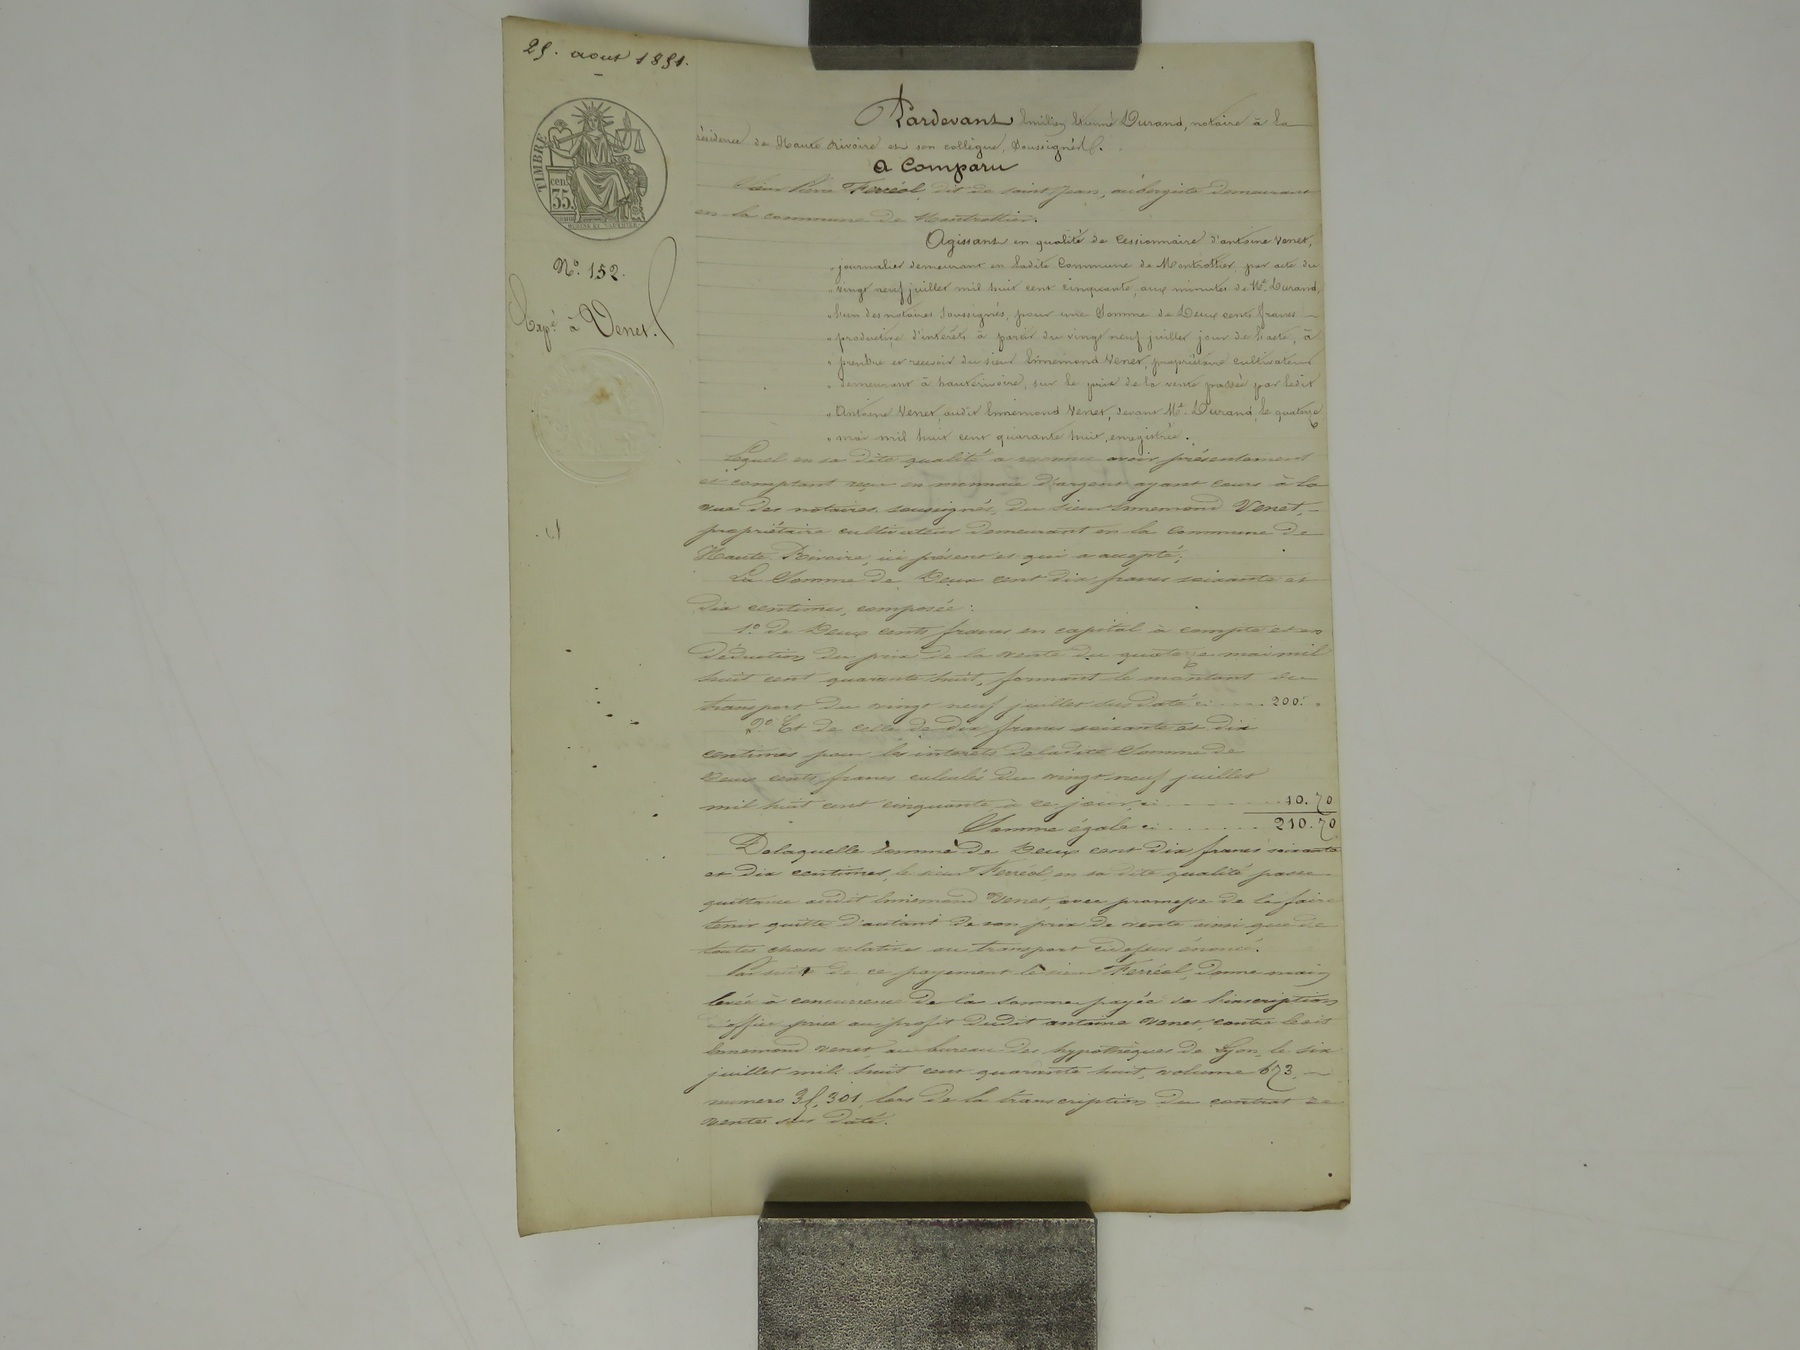 25. aout 1851.
TIMBRE
cen.
35.
N.º 152.
Exp.é à Venet.
Pardevant Emilien Etienne Durand, notaire à la
résidence de Haute Rivoire et son collègue, soussignés.
A Comparu
Sieur Pierre Ferréol, dit de saint Jean, aubergiste demeurant
en la commune de Montrottier.
Agissant en qualité de Cessionnaire d'antoine Venet,
" journalier demeurant en ladite Commune de Montrottier, par acte du
" vingt neuf juillet mil huit cent cinquante, aux minutes de Me. Durand,
" l'un des notaires soussignés, pour une Somme de Deux cents francs
" productive d'intérêts à partir du vingt neuf juillet jour de l'acte, à
" prendre et recevoir du sieur Ennemond Venet, propriétaire cultivateur
" demeurant à hauterivoire, sur le prix de la vente passée par ledit
" Antoine Venet, audit Ennemond Venet, devant Me. Durand, le quatorze
" mai mil huit cent quarante huit, enregistrée.
Lequel en sa dite qualité a reconnu avoir présentement
et comptant reçu en monnaie d'argent ayant cours à la
vue des notaires soussignés, du sieur Ennemond Venet,
propriétaire cultivateur demeurant en la commune de
Haute Rivoire, ici présent et qui a accepté;
La Somme de Deux cent dix francs soixante et
dix centimes, composée :
1.º de Deux cents francs en capital à compte et en
Déduction du prix de la vente du quatorze mai mil
huit cent quarante huit, formant le montant du
transport du vingt neuf juillet sus daté ci . . . . 200. "
2.º Et de celle de dix francs soixante et dix
centimes pour les intérêts de ladite Somme de
Deux cents francs calculés du vingt neuf juillet
mil huit cent cinquante, à ce jour, ci . . . . . 10. 70
Somme égale ci . . . . . . 210. 70
Delaquelle somme de Deux cent dix francs soixante
et dix centimes, le sieur Ferréol, en sa dite qualité passe
quittance audit Ennemond Venet, avec promesse de le faire
tenir quitte d'autant de son prix de vente ainsi que de
toutes choses relatives au transport cidessus énoncé.
Par suite de ce payement le sieur Ferréol, donne main
levée à concurrence de la somme payée de l'inscription
d'office prise au profit dudit antoine Venet, contre ledit
Ennemond venet, au bureau des hypothèques de Lyon, le six
juillet mil huit cent quarante huit, volume 673,
numero 35,301, lors de la transcription du contrat de
vente sus daté.